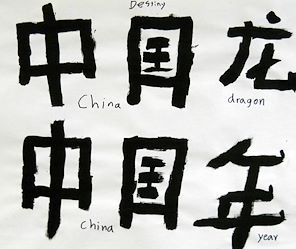 Destiny
中国龙
China dragon
中国年
China year